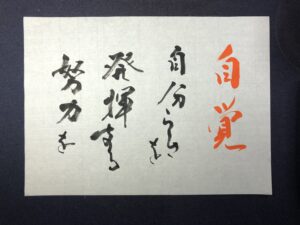 自覚
自分らしさを
発揮する
努力を